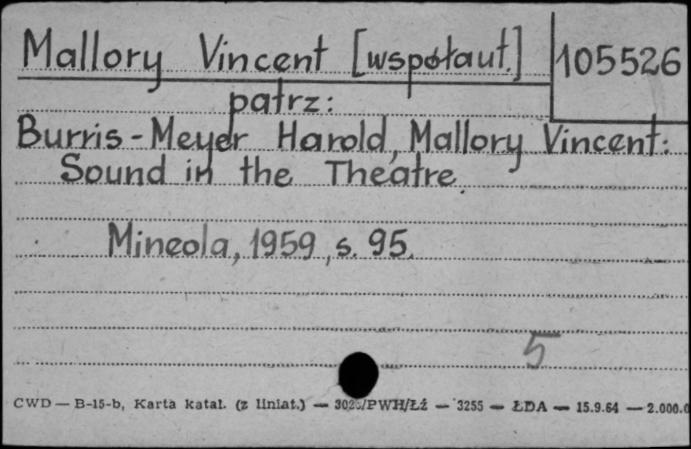 Mallory Vincent [współaut.] 105526
patrz:
Burris-Meyer Harold, Mallory Vincent:
Sound in the Theatre.
Mineola, 1959, s. 95.
5
CWD — B-15-b, Karta katal. (z liniat.) — /PWH/Łź — 3255 — ŁDA — 15.9.64 — 2.000.0